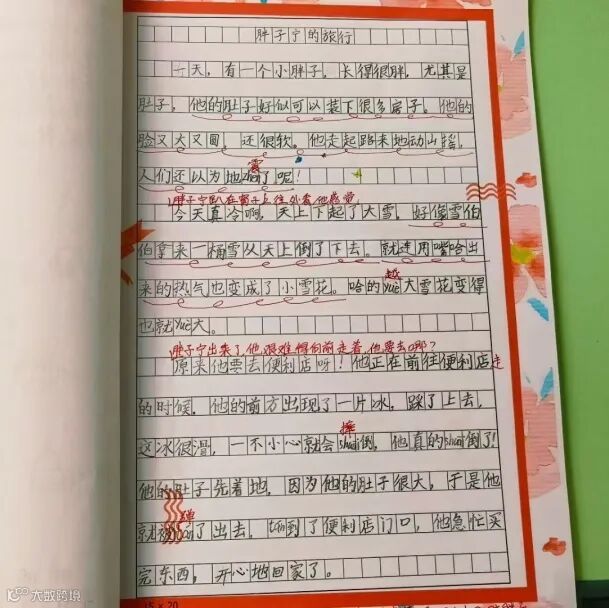 胖子宁的旅行
一天，有一个小胖子。长得很胖，尤其是
肚子，他的肚子好似可以装下很多房子。他的
脸又大又圆，还很软。他走起路来地动山摇，
震
人们还以为地zhèn了呢！
胖子宁趴在窗子上往外看，他感觉
今天真冷啊。天上下起了大雪。好像雪伯
伯拿来一桶雪从天上倒了下去。就连用嘴哈出
越
来的热气也变成了小雪花。哈的yuè大雪花变得
也就yuè大。
胖子宁出来了，他艰难得向前走着，他要去哪？
原来他要去便利店呀！他正在前往便利店走
的时候，他的前方出现了一片冰，踩了上去，
摔
这冰很滑，一不小心就会shuāi倒，他真的shuāi倒了！
他的肚子先着地，因为他的肚子很大，于是他
弹
就被tán了出去。tán到了便利店门口，他急忙买
完东西，开心地回家了。
15×20
大数跨境